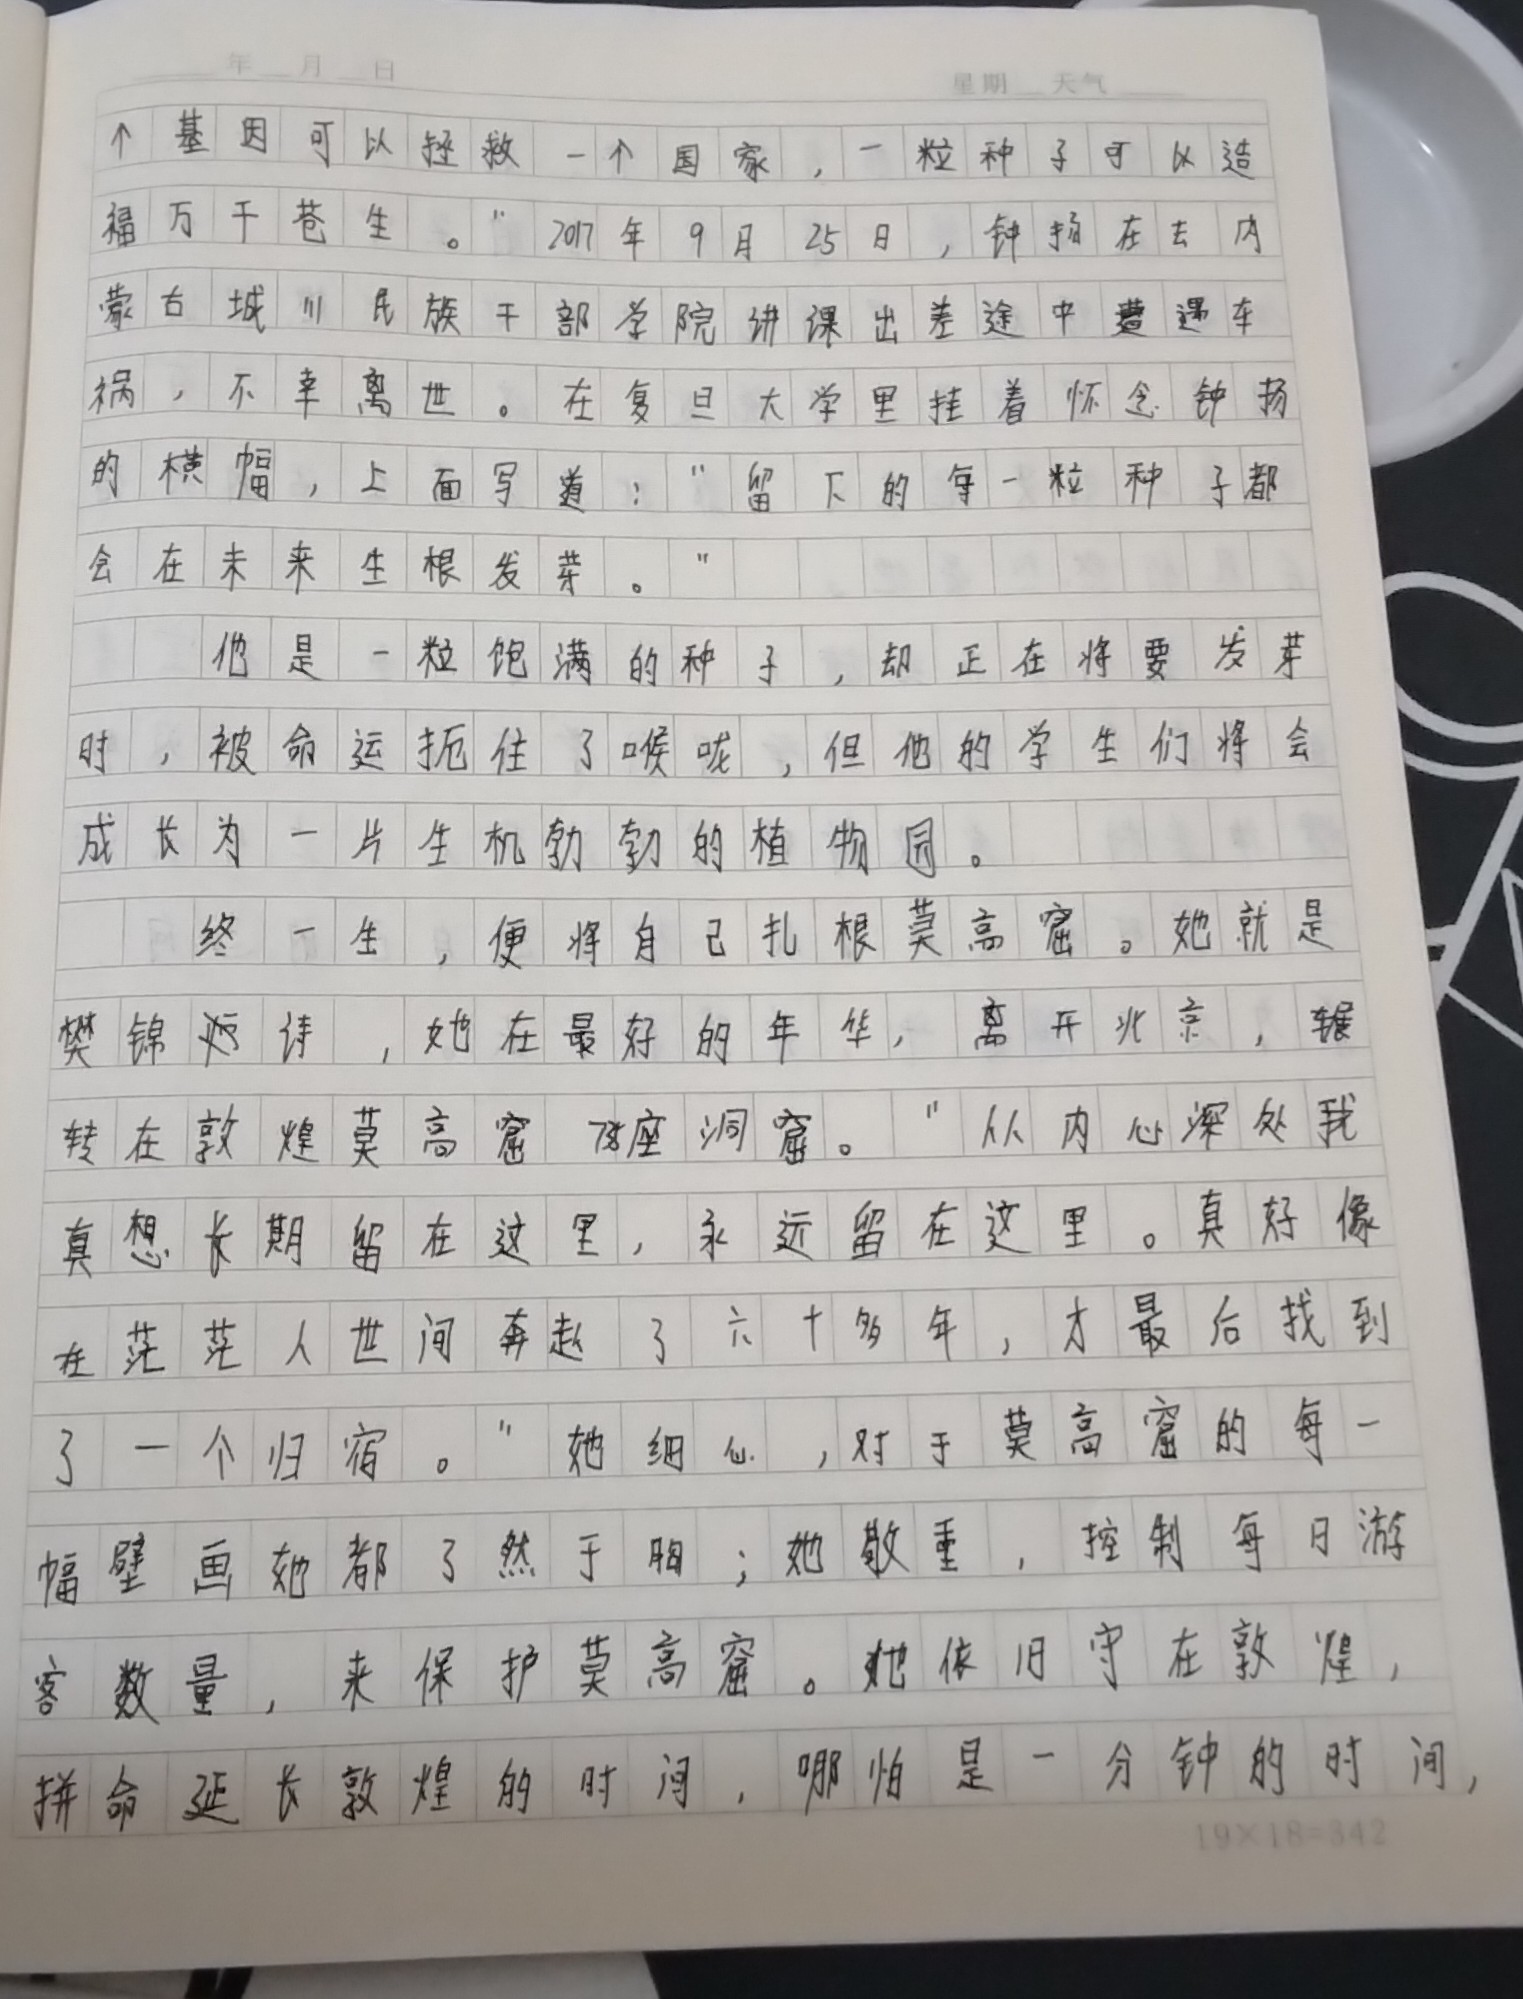 年 月 日 星期 天气
个基因可以拯救一个国家，一粒种子可以造
福万千苍生。"2017年9月25日，钟扬在去内
蒙古城川民族干部学院讲课出差途中遭遇车
祸，不幸离世。在复旦大学里挂着怀念钟扬
的横幅，上面写道："留下的每一粒种子都
会在未来生根发芽。"
他是一粒饱满的种子，却正在将要发芽
时，被命运扼住了喉咙，但他的学生们将会
成长为一片生机勃勃的植物园。
终一生，便将自己扎根莫高窟。她就是
樊锦诗，她在最好的年华，离开北京，辗
转在敦煌莫高窟735座洞窟。"从内心深处我
真想长期留在这里，永远留在这里。真好像
在茫茫人世间奔赴了六十多年，才最后找到
了一个归宿。"她细心，对于莫高窟的每一
幅壁画她都了然于胸；她敬重，控制每日游
客数量，来保护莫高窟。她依旧守在敦煌，
拼命延长敦煌的时间，哪怕是一分钟的时间，
19×18=342